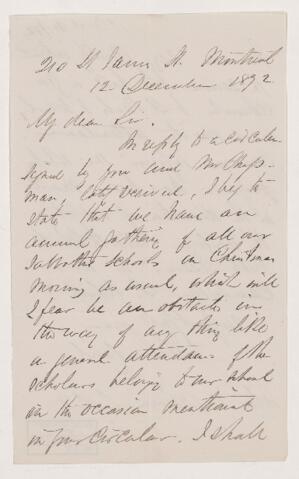 210 St James St. Montreal
12 December 1892
My dear Sir.
In reply to a circular
signed by you and Mr Chip-
man, just received, I beg to
state that we have an
annual gathering of all our
Sabbath Schools on Christmas
morning as usual, which will
I fear be an obstacle in
the way of any thing like
a general attendance of the
scholars belonging to our school
on the occasion mentioned
in your circular. I shall